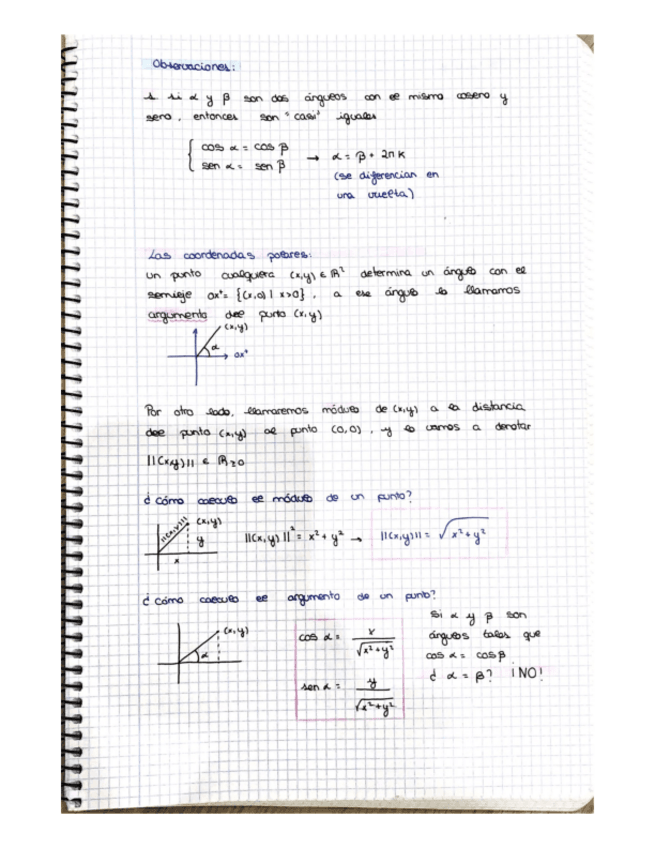 Observaciones:
1. si α y β son dos ángulos con el mismo coseno y
seno, entonces son "casi" iguales
cos α = cos β
sen α = sen β → α = β + 2πk
(se diferencian en
una vuelta)
Las coordenadas polares:
un punto cualquiera (x,y) ∈ ℝ² determina un ángulo con el
semieje ox⁺ = {(x,0) | x>0}, a ese ángulo lo llamamos
argumento del punto (x,y)
(x,y)
α
ox⁺
Por otro lado, llamaremos módulo de (x,y) a la distancia
del punto (x,y) al punto (0,0), y lo vamos a denotar
||(x,y)|| ∈ ℝ≥0
¿cómo calculo el módulo de un punto?
||(x,y)|| (x,y)
y
x
||(x,y)||² = x² + y² → ||(x,y)|| = √(x² + y²)
¿cómo calculo el argumento de un punto?
(x,y)
α
cos α = x / √(x²+y²)
sen α = y / √(x²+y²)
Si α y β son
ángulos tales que
cos α = cos β
¿ α = β? ¡NO!